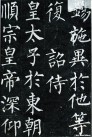 錫施異於他等
復詔侍
皇太子於東
順宗皇帝深仰